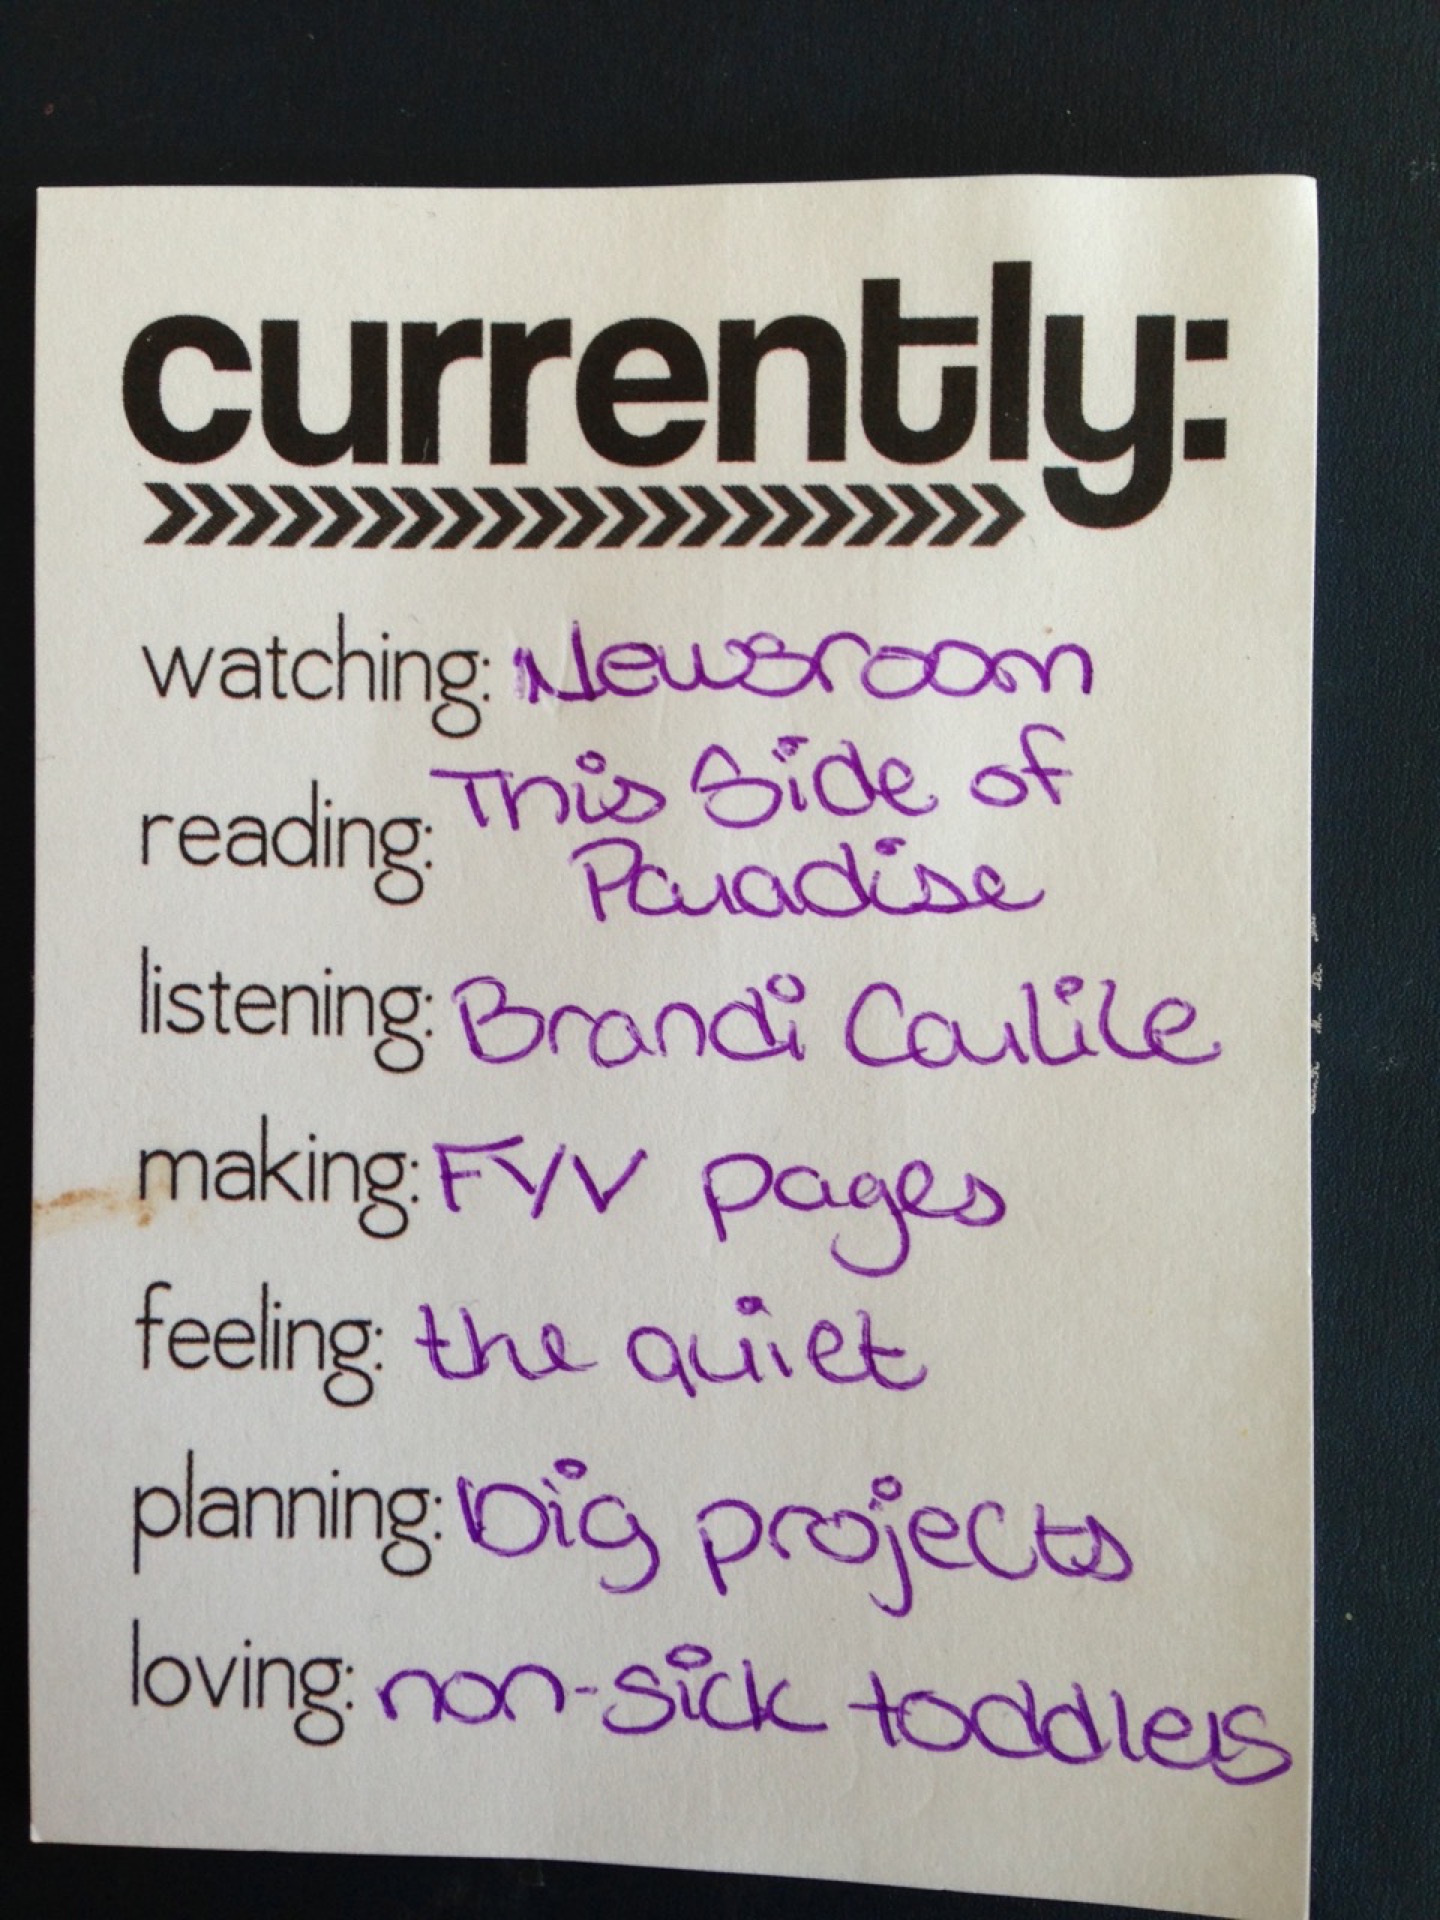 currently:
watching: Newsroom
reading: This Side of
Paradise
listening: Brandi Carlile
making: FYV pages
feeling: the quiet
planning: Big projects
loving: non-sick toddlers